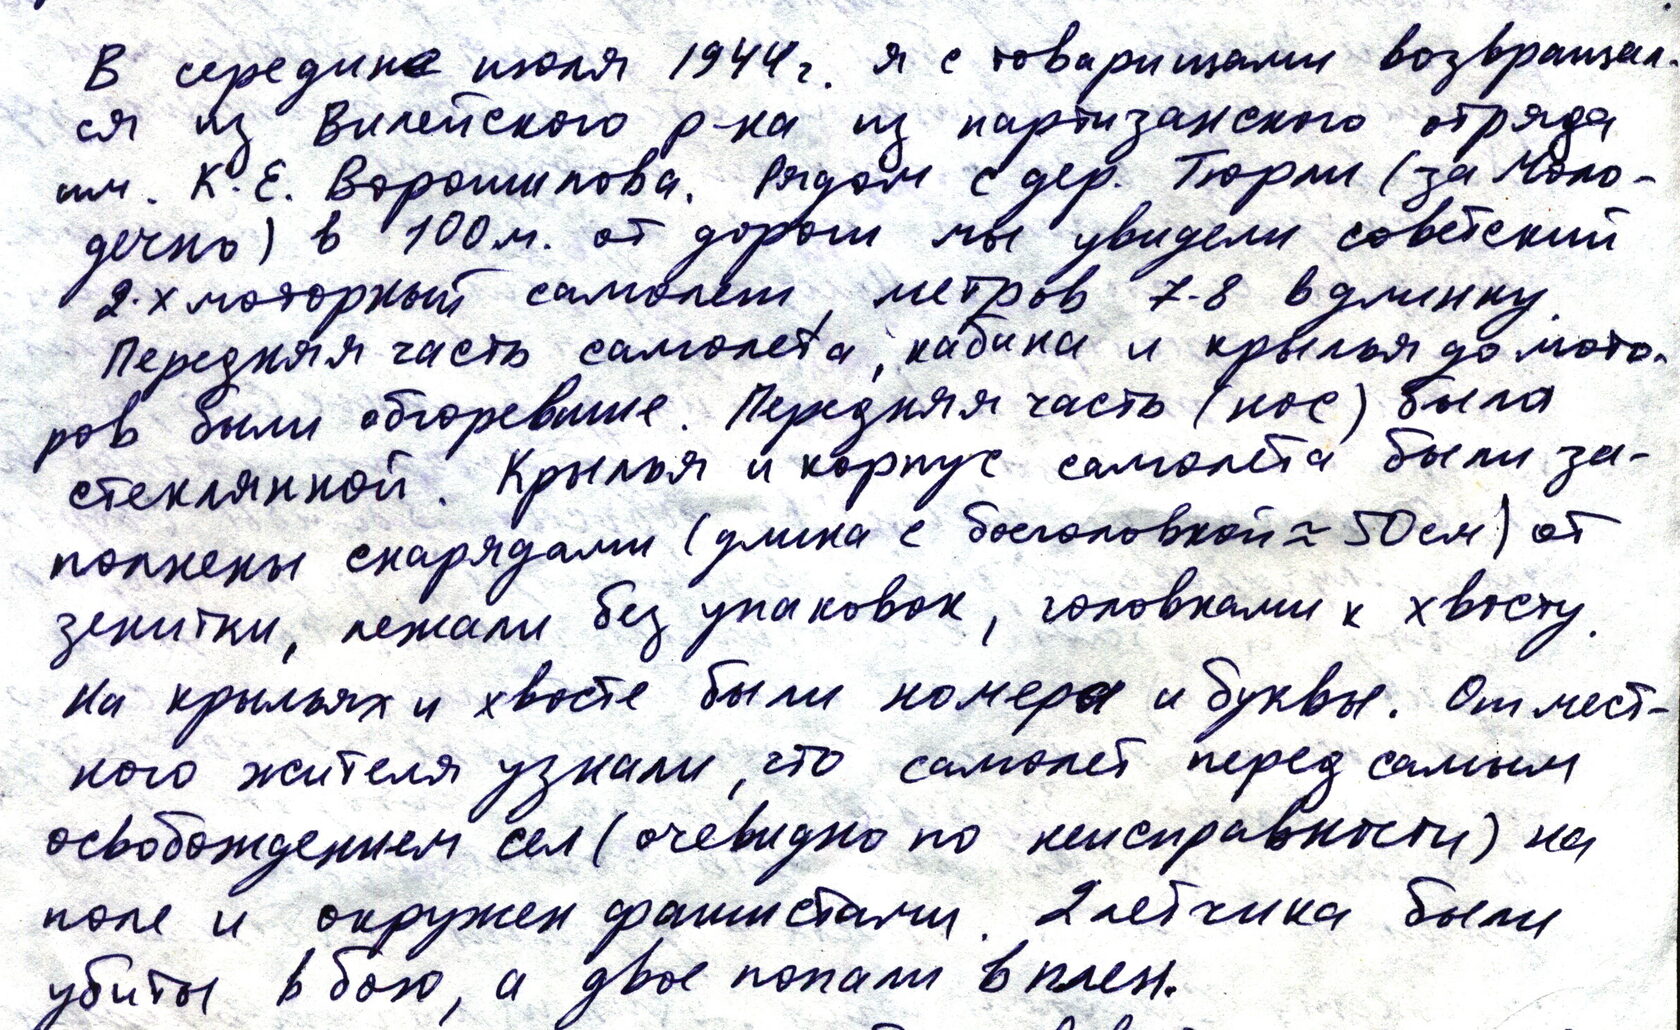 В середине июля 1944 г. я с товарищами возвращал-
ся из Вилейского р-на из партизанского отряда
им. К.Е. Ворошилова. Рядом с дер. Тюрли (за Моло-
дечно) в 100 м. от дороги мы увидели советский
2-х моторный самолет, метров 7-8 в длинну.
Передняя часть самолета, кабина и крылья до мото-
ров были обгоревшие. Передняя часть (нос) была
стеклянной. Крылья и корпус самолета были за-
полнены снарядами (длина с боеголовкой ≈ 50 см) от
зенитки, лежали без упаковок, головками к хвосту.
На крыльях и хвосте были номера и буквы. От мест-
ного жителя узнали, что самолет перед самым
освобождением сел (очевидно по неисправности) на
поле и окружен фашистами. 2 летчика были
убиты в бою, а двое попали в плен.